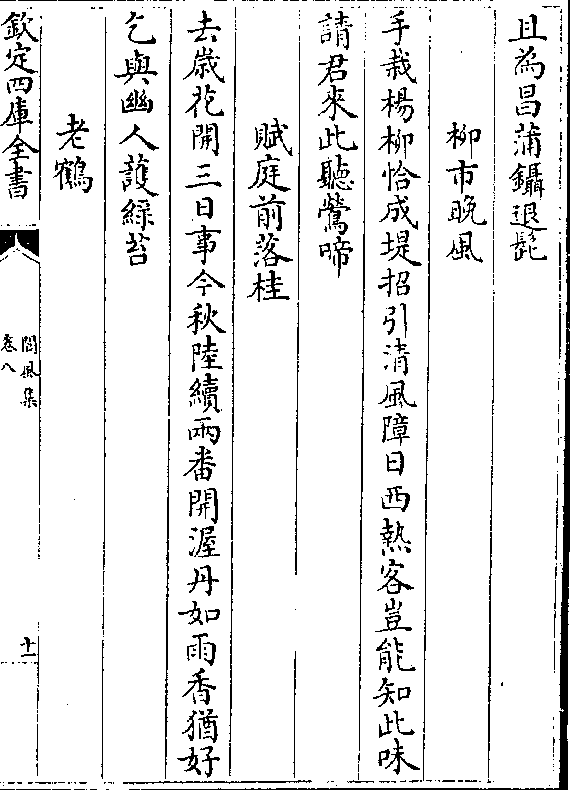 且為昌蒲鑷退髭
柳市晚風
手栽楊柳恰成堤招引清風障日西熱客豈能知此味
請君來此聽鶯啼
賦庭前落桂
去歲花開三日事今秋陸續兩番開渥丹如雨香猶好
乞與幽人護綠苔
老鶴
欽定四庫全書
閬風集
卷八
十一